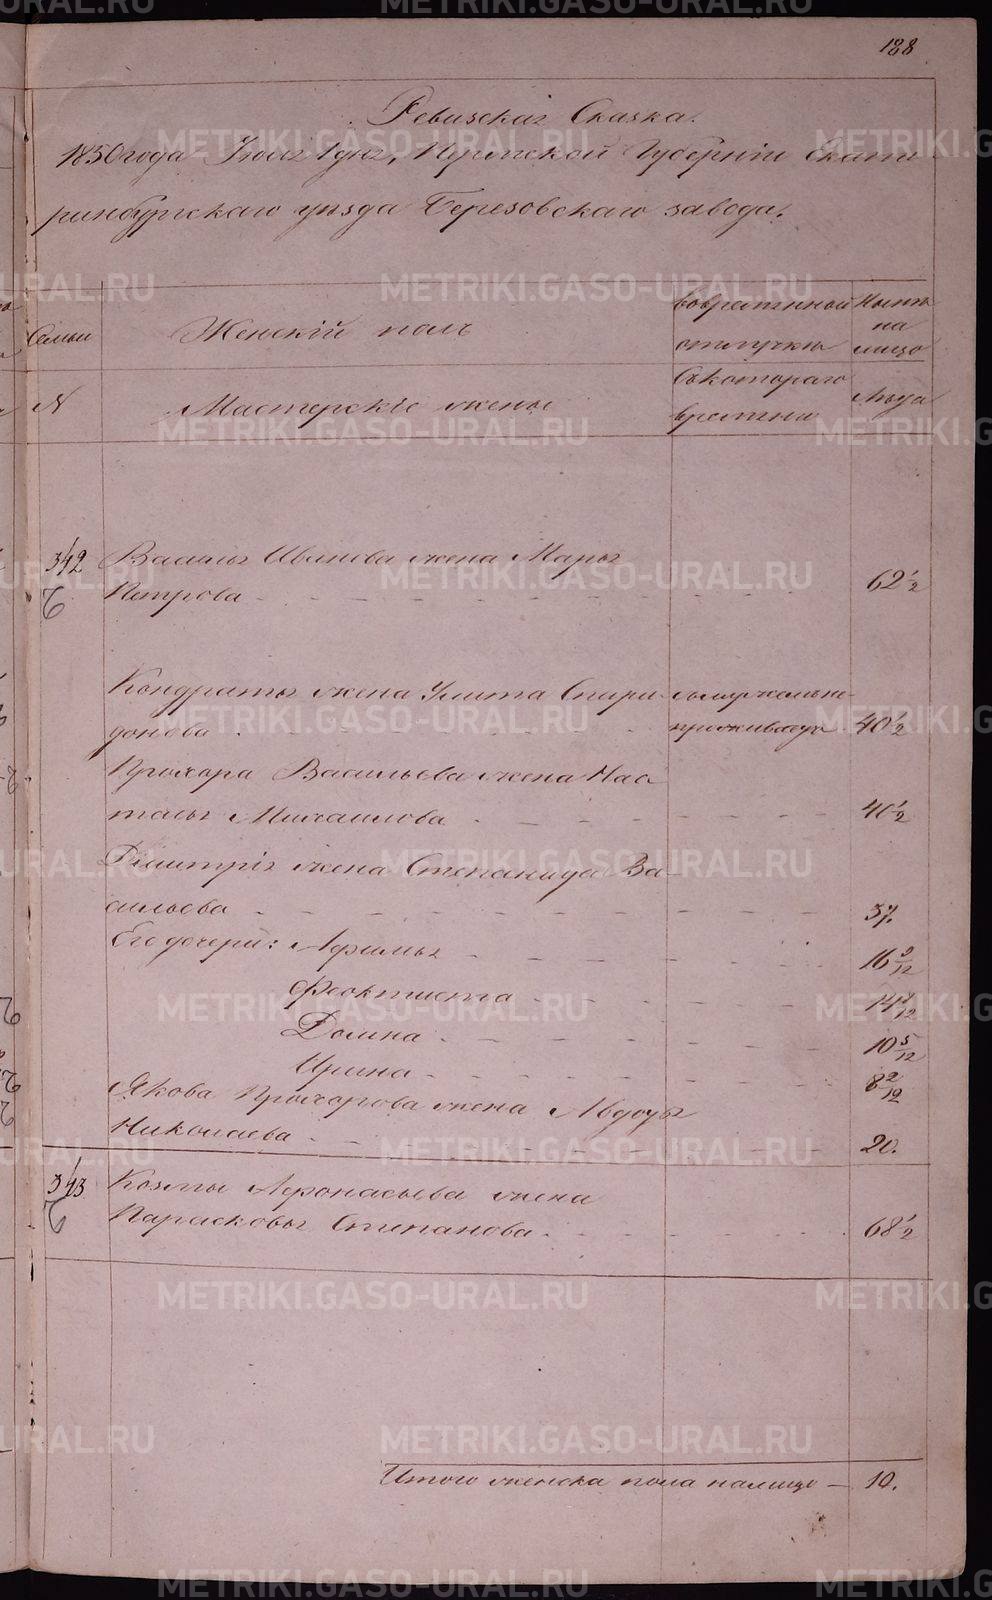 188
Ревизская Сказка.
1850 года Июля 1 дня, Пермской Губернии Екате-
ринбургскаго уѣзда Березовскаго завода.
Семьи
Женскій полъ
Во временной
отлучкѣ
Нынѣ
на
лицо
N
Мастерскіе жены
Съ котораго
времени
Лѣта
342 Василья Иванова жена Марья
Петрова 62 1/2
Кондратья жена Улита Спири-
донова
проживаетъ 40 1/2
Прохора Васильева жена Ната-
талья Михаилова 40 1/2
Дмитрія жена Степанида Ва-
сильева 37.
Его дочери: Афимья 16 9/12
Феоктиста
Домна 10 5/12
Ирина 8 2/12
Якова Прохорова жена Авдотья
Николаева 20.
343 Козмы Афонасьева жена
Парасковья Степанова 68 1/2
Итого женска пола на лицо — 10.
METRIKI.GASO-URAL.RU